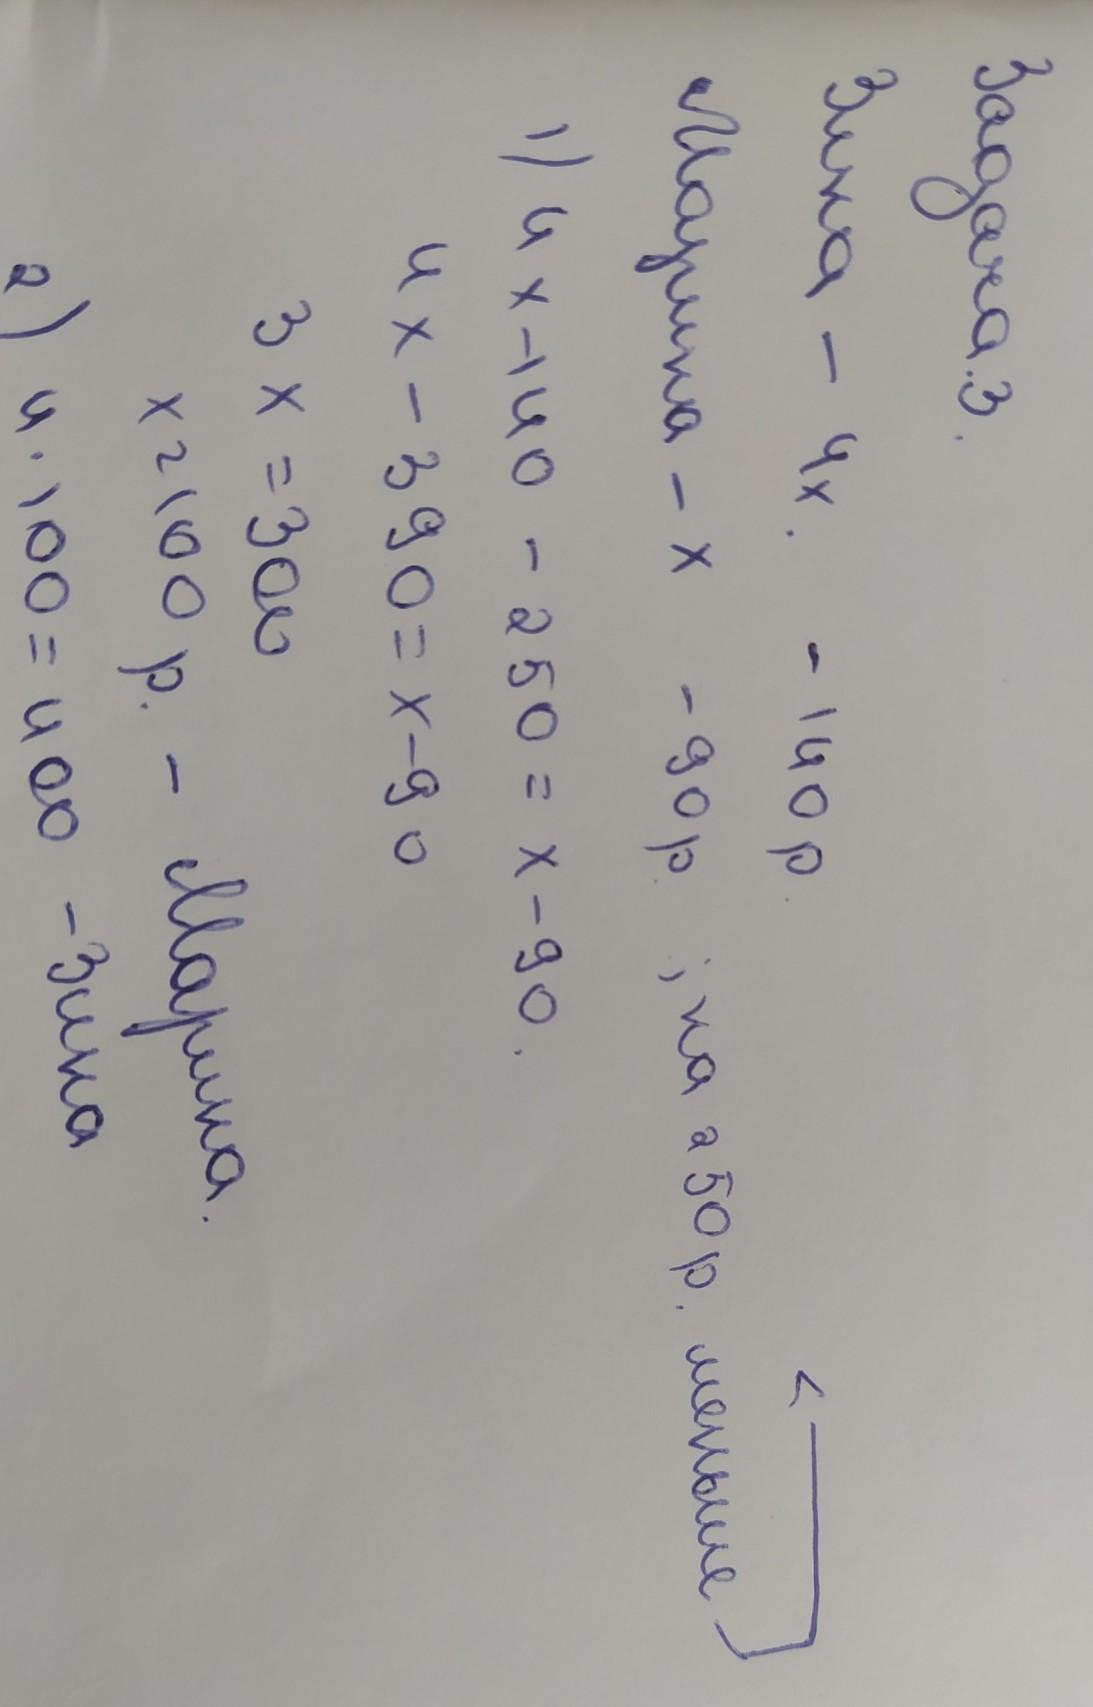 Задача.3.
Зина - 4х. - 140р.
Марина - х - 90р. ; на 250р. меньше
1) 4х-140 - 250 = х-90.
4х - 390 = х-90
3х = 300
х=100р. - Марина.
2) 4.100 = 400 - Зина